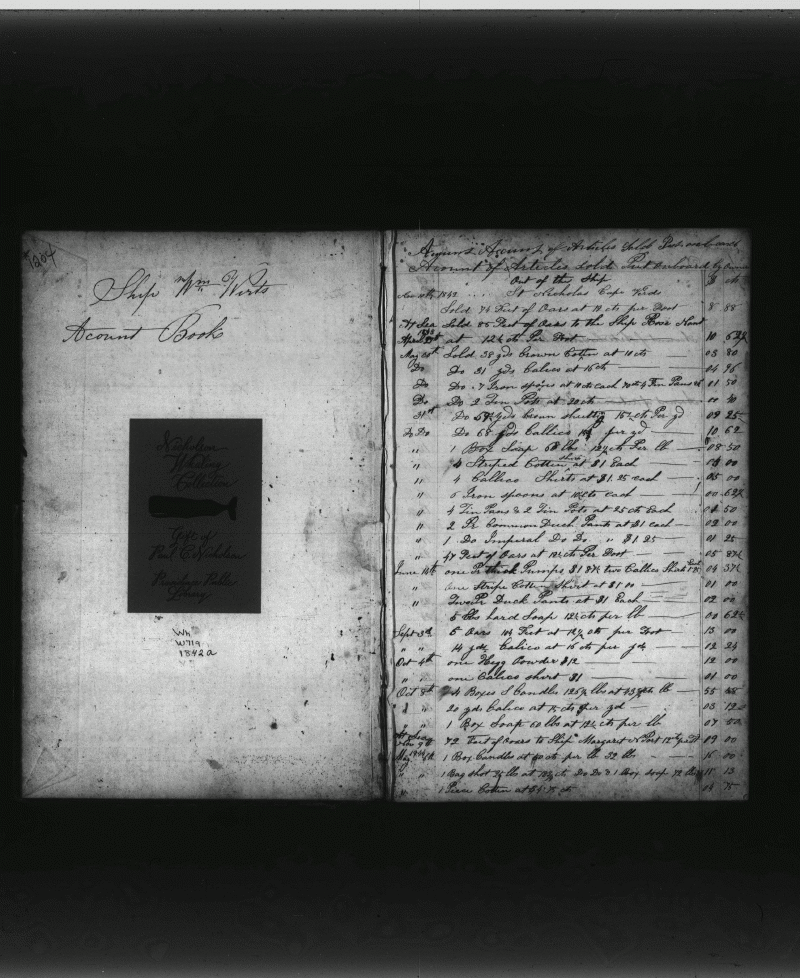 1204
Ship Wm C Wirts
Acount Book
Nicholson
Whaling
Collection
Gift of
Paul C. Nicholson
Providence Public
Library
Wh
W719
1842a
Acount of Articles Sold Port over board
Acount of Articles Sold Port overboard
Out of the Ship
1842 St Nicholas Cape Verds
Sold 74 Feet of Oars at 12 cts per Foot 8 88
At Sea Sold 85 Feet of Oars to the Ship Rose
1843 at 12½ cts Per Foot 10 62½
May Sold 38 yds brown Cotten at 10 cts 03 80
Do Do 31 yds Calico at 16 cts 04 96
Do Do 7 Iron spoons at 10 cts each 4 Tin Pans 01 50
Do Do 2 Tin Pots at 20 cts 00 40
31st Do yds brown sheeting 16½ cts Per yd 09 25
Do Do Do 68 yds Callico per yd 10 62
" 1 Box Soap 68 lbs 12½ cts Per lb 08 50
" 4 Striped Cotten shirts at $1 Each 04 00
" 4 Callico Shirts at $1.25 each 05 00
" 6 Iron spoons at 10½ cts each 00 62½
" 4 Tin Pans & 2 Tin Pots at 25 cts Each 01 50
" 2 Pr Common Duck Pants at $1 each 02 00
" 1 Do Imperial Do Do " $1 25 01 25
" 47 Feet of Oars at 12½ cts Per Foot 05 87½
June 14th one Pr thick Pumps $1 87½ two Callico Shirts 04 37½
" one Stripe Cotten Shirt at $1 00 01 00
" Two Pr Duck Pants at $1 Each 02 00
5 lbs hard Soap 12½ cts per lb 00 62½
Sept 3d 5 Oars 104 Feet at 12½ cts per Foot 13 00
" " 14 yds Calico at 16 cts per yd 12 24
Oct 4th one Kegg Powder $12 12 00
" one Calico shirt $1 01 00
Oct 8th 4 Boxes S Candles lbs at cts lb 55
" " 20 yds Calico at cts per yd 03 12
" 1 Box Soap 60 lbs at 12½ cts per lb 07 50
At Sea 72 Feet of oars to Ship Margaret 09 00
May 1 Box Candles at 50 cts per lb 32 lb 16 00
" " 1 Bag shot 25 lbs at 12½ cts Do Do & 1 Box soap 72 lbs 11 13
" 1 Piece Cotten at $4.75 cts 04 75